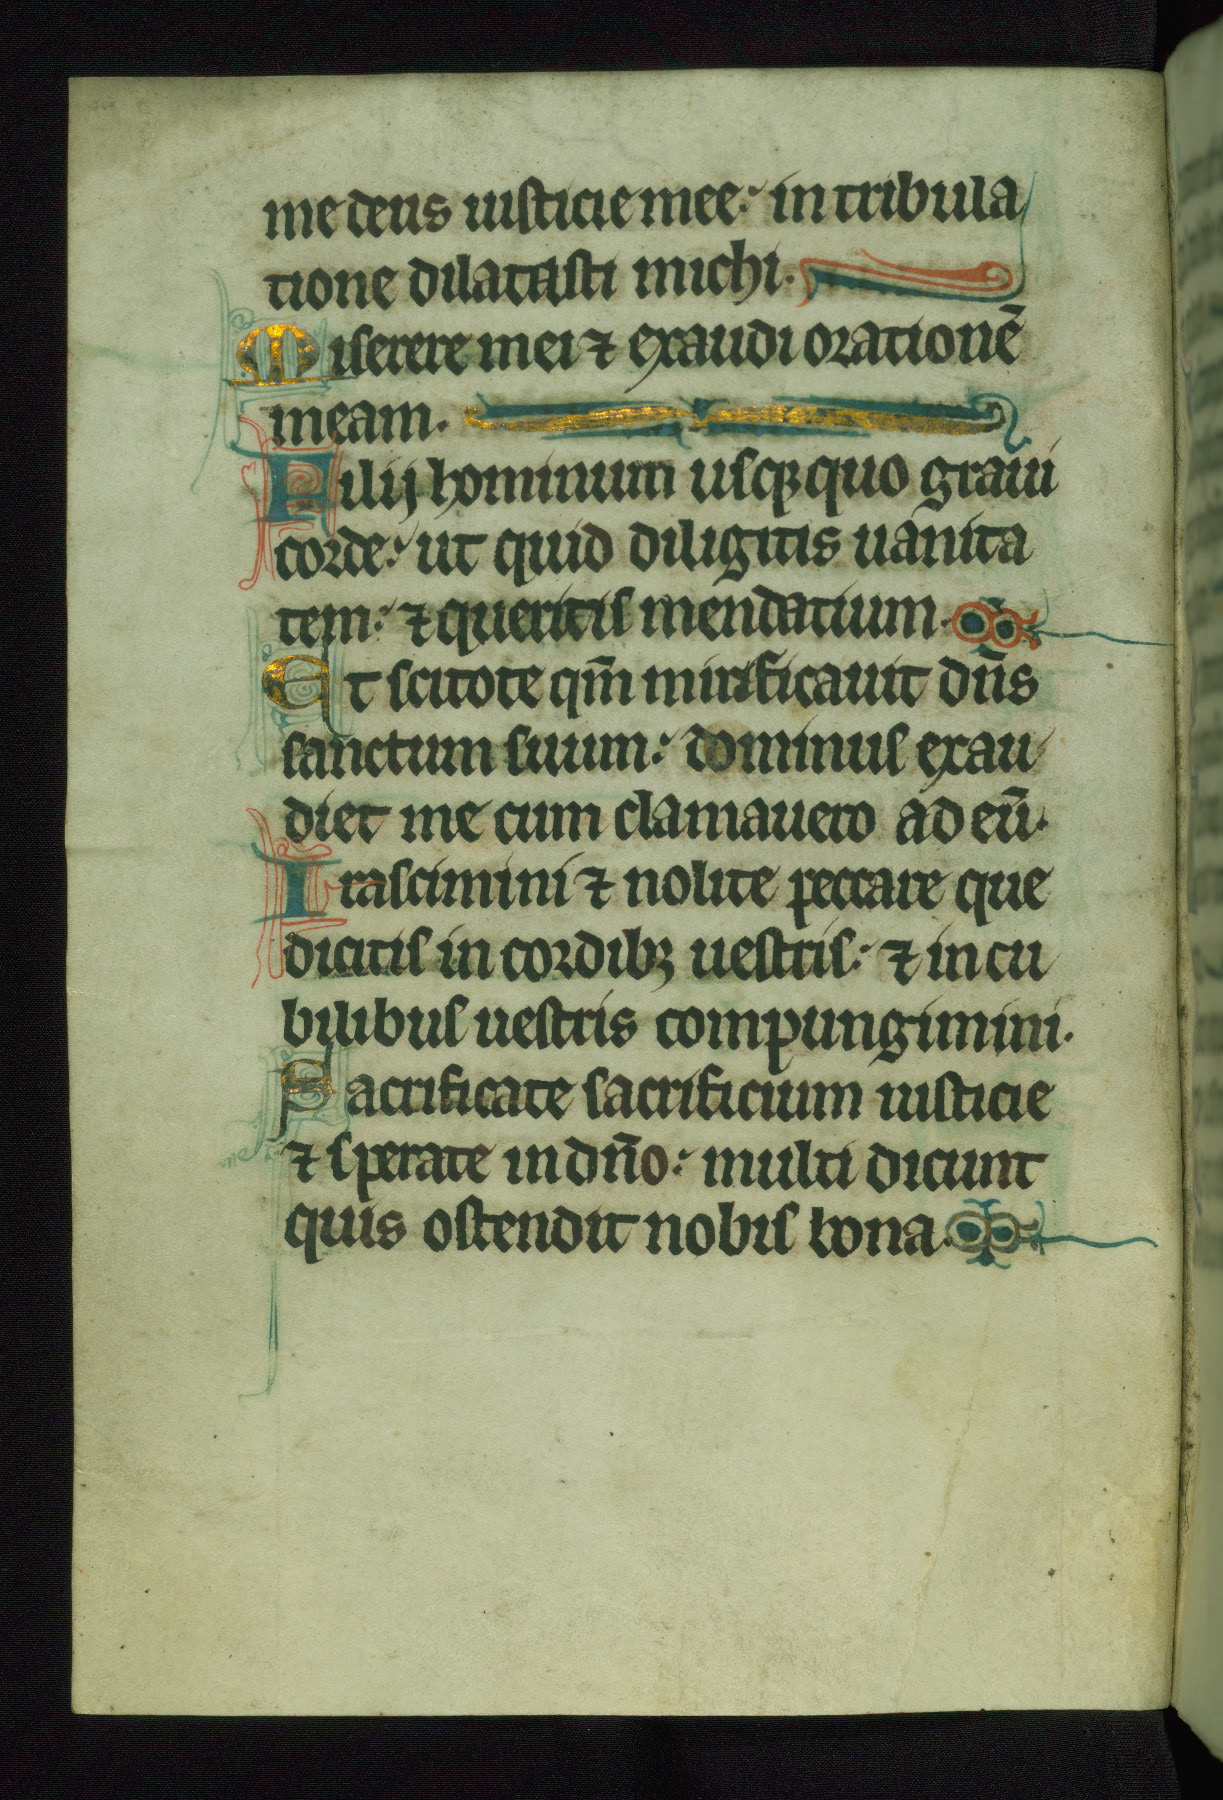 me deus iusticie mee: in tribula
tione dilatasti michi.
Miserere mei ⁊ exaudi orationē
meam.
Filij hominum usqꝫ quo graui
corde: ut quid diligitis uanita
tem: ⁊ queritis mendatium.
Et scitote qm̄ mirificauit dn̄s
sanctum suum: dominus exau
diet me cum clamauero ad eū.
Irascimini ⁊ nolite peccare que
dicitis in cordibꝫ uestris: ⁊ in cu
bilibus uestris compungimini.
Sacrificate sacrificium iusticie
⁊ sperate in dn̄o: multi dicunt
quis ostendit nobis bona.